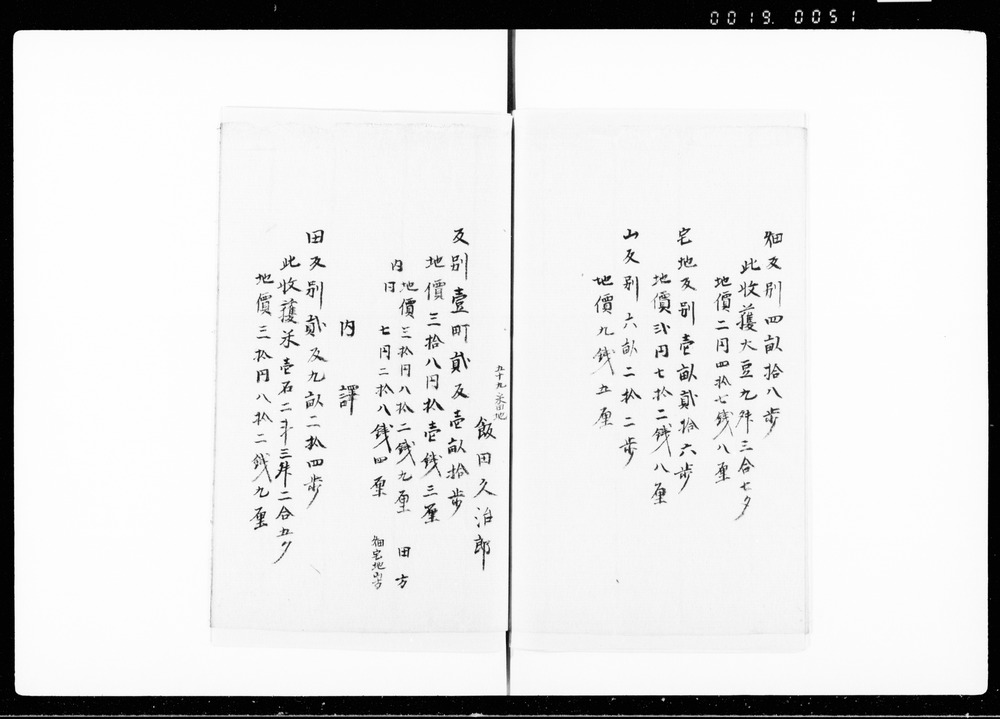 0019. 0051
畑反別四畝拾八歩
此收護大豆九升三合七夕
地價二円四拾七銭八厘
宅地反別壱畝貳拾六歩
地價弐円七拾二銭八厘
山反別六畝二拾二歩
地價九銭五厘
五十九 番地
飯田久治郎
反別壹町貳反壱畝拾歩
地價三拾八円拾壱銭三厘
内 地價三拾円八拾二銭九厘 田方
同 七円二拾八銭四厘 畑宅地山方
内譯
田反別貳反九畝二拾四歩
此收護米壱石二斗三升二合五夕
地價三拾円八拾二銭九厘